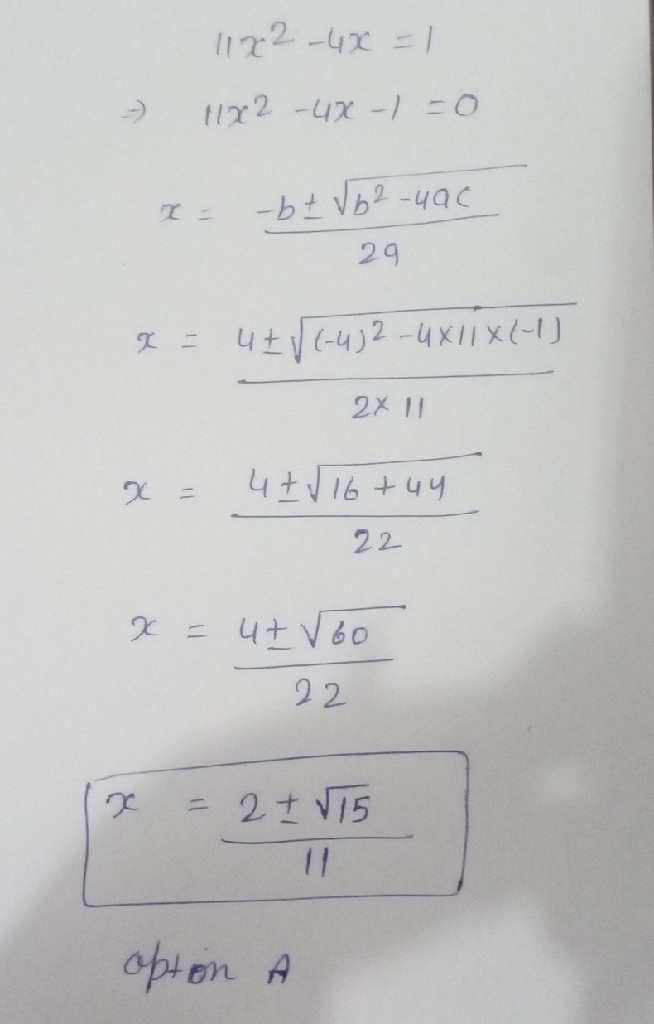 11x² - 4x = 1
⇒ 11x² - 4x - 1 = 0
x = (-b ± √(b² - 4ac)) / 2a
x = (4 ± √((-4)² - 4×11×(-1))) / (2×11)
x = (4 ± √(16 + 44)) / 22
x = (4 ± √60) / 22
x = (2 ± √15) / 11
option A